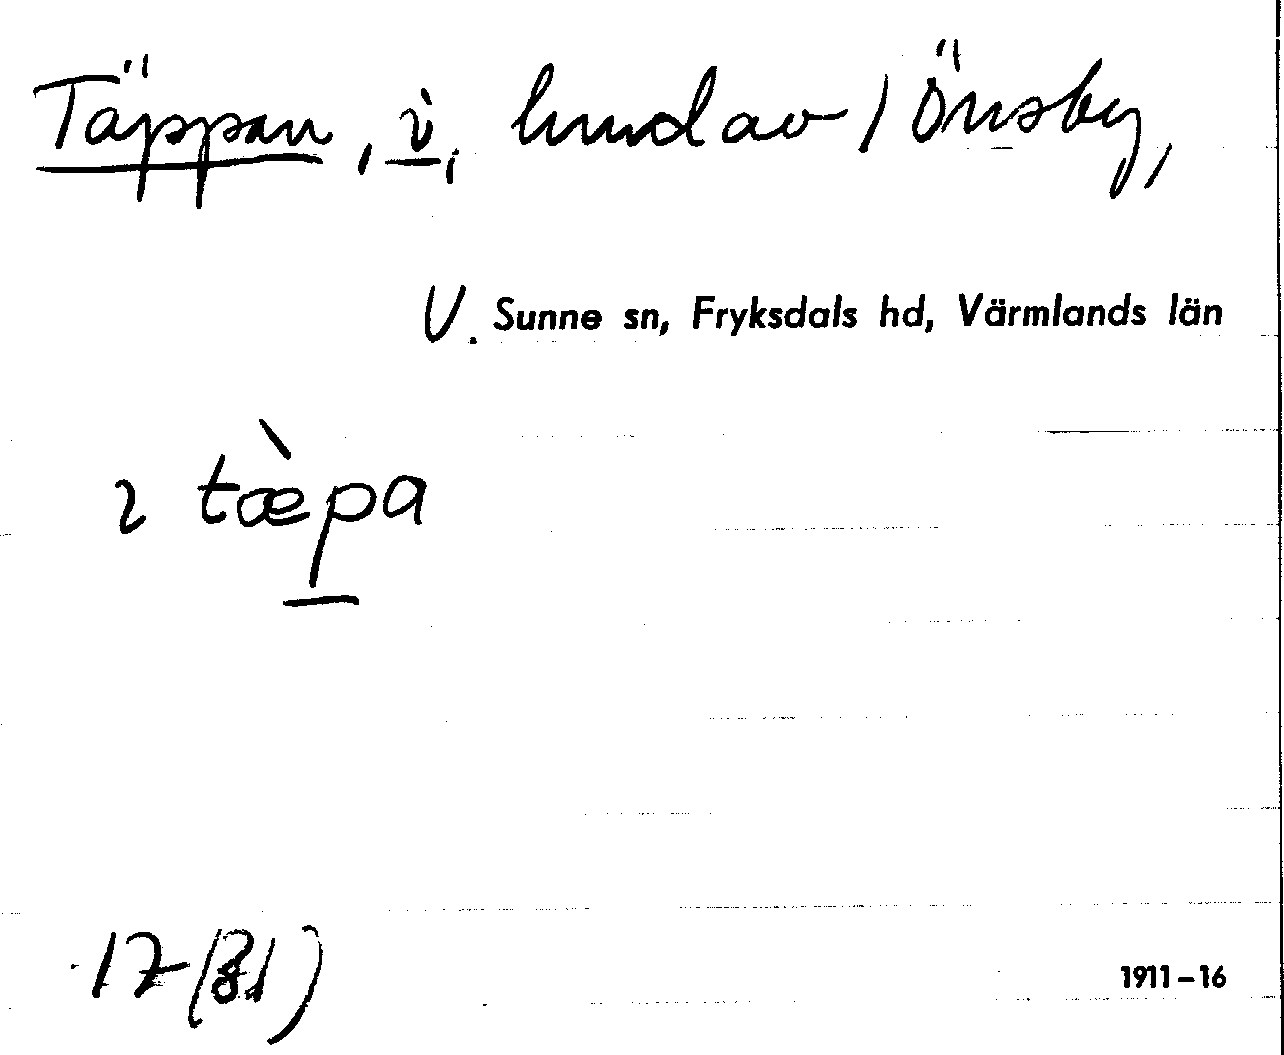 Täppan, i, hmd av / Önsby,
V. Sunne sn, Fryksdals hd, Värmlands län
ı tæ̀pa
17 (31)
1911-16